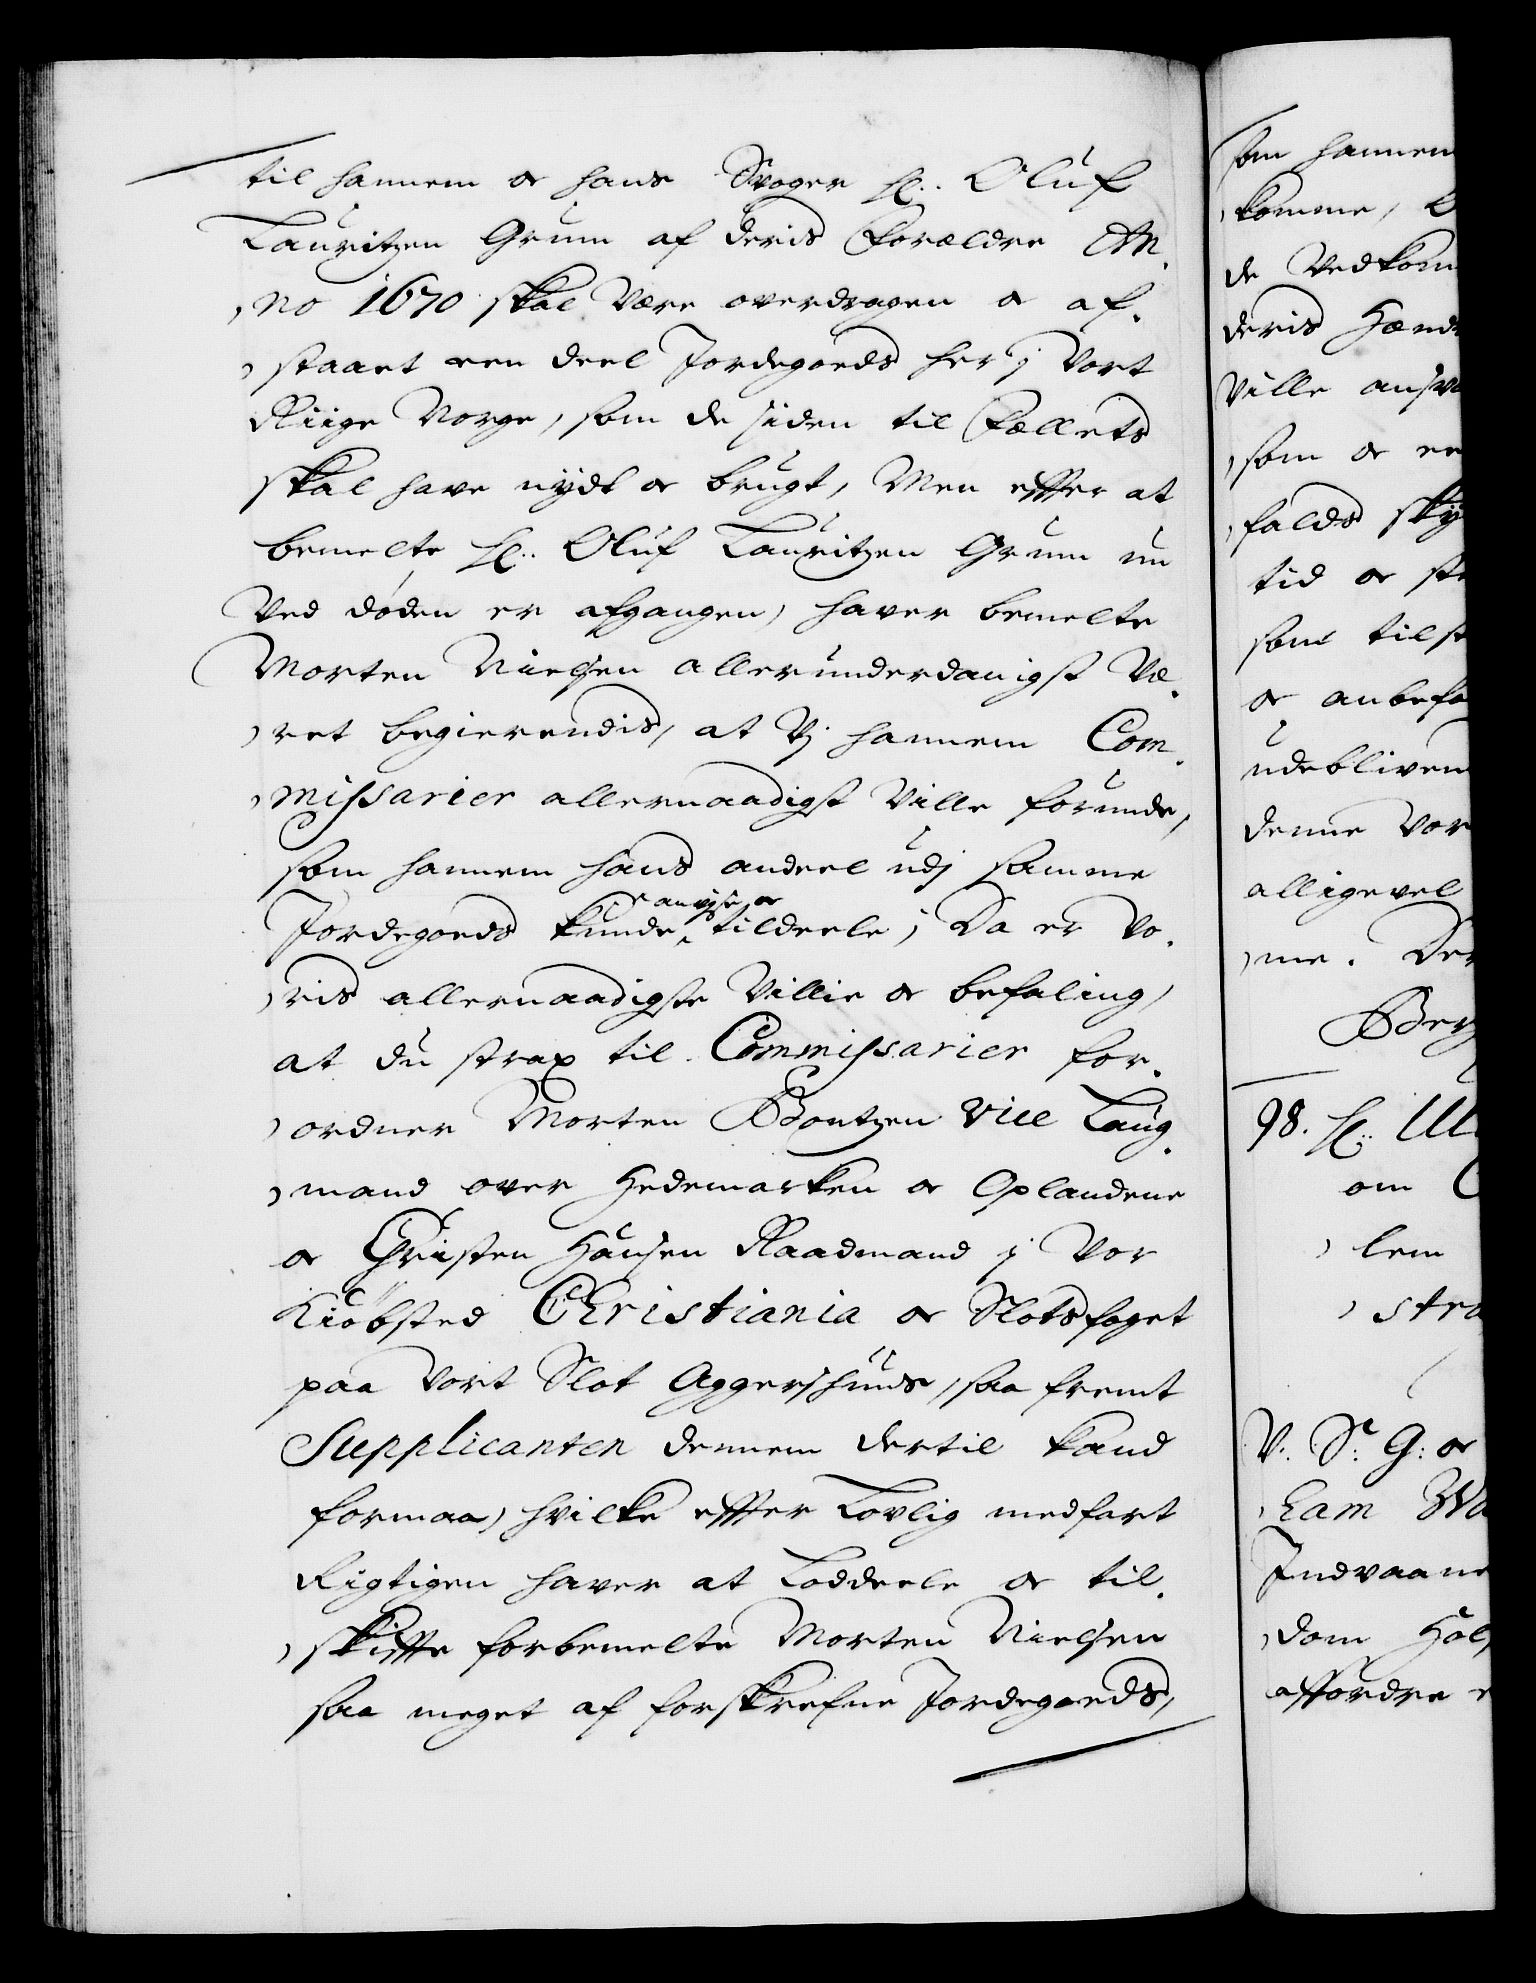 til hannem oc hans Svoger Sl: Oluf
Lauritzen Grum af deris Forældre An-
no 1670 skal være overdragen oc af-
staaet een deel Jordegoeds her j Vort
Riige Norge, som de siden til Fællets
skal have nydt oc brugt, Men effter at
bemelte Sl: Oluf Lauritzen Grum nu
Ved døden er afgangen, haver bemelte
Morten Nielsen allerunderdanigst Væ-
ret begierendis, at Vj hannem Com-
missarier allernaadigst Ville forunde,
som hannem hans andeel udj samme
Jordegoeds kunde anvise oc tildeele; Da er Vo-
ris allernaadigste Villie oc befaling,
at du strax til Commissarier for-
ordner Morten Bontzen Vice Laug-
mand over Hedemarken oc Oplandene
oc Christen Hansen Raadmand j Vor
Kiøbsted Christiania oc Slotsfoget
paa Vort Slot Aggershuus, saa fremt
Supplicanten dennem dertil kand
formaa, hvilke effter Lovlig medfart
Rigtigen haver at Loddeele oc til-
skiffte forbemelte Morten Nielsen
saa meget af forskrefne Jordegoeds,
som hannem
komme,
de Vedkom
deris Hænd
Ville ansva
som oc ee
falds sky
tid oc ste
som tilst
oc anbefa
udebliven
denne Vor
alligevel
me. Der
Berg
98. Sl:
om
lem
stra
V. S: G: oc
Lam
Indvaane
dom Hol
affordre